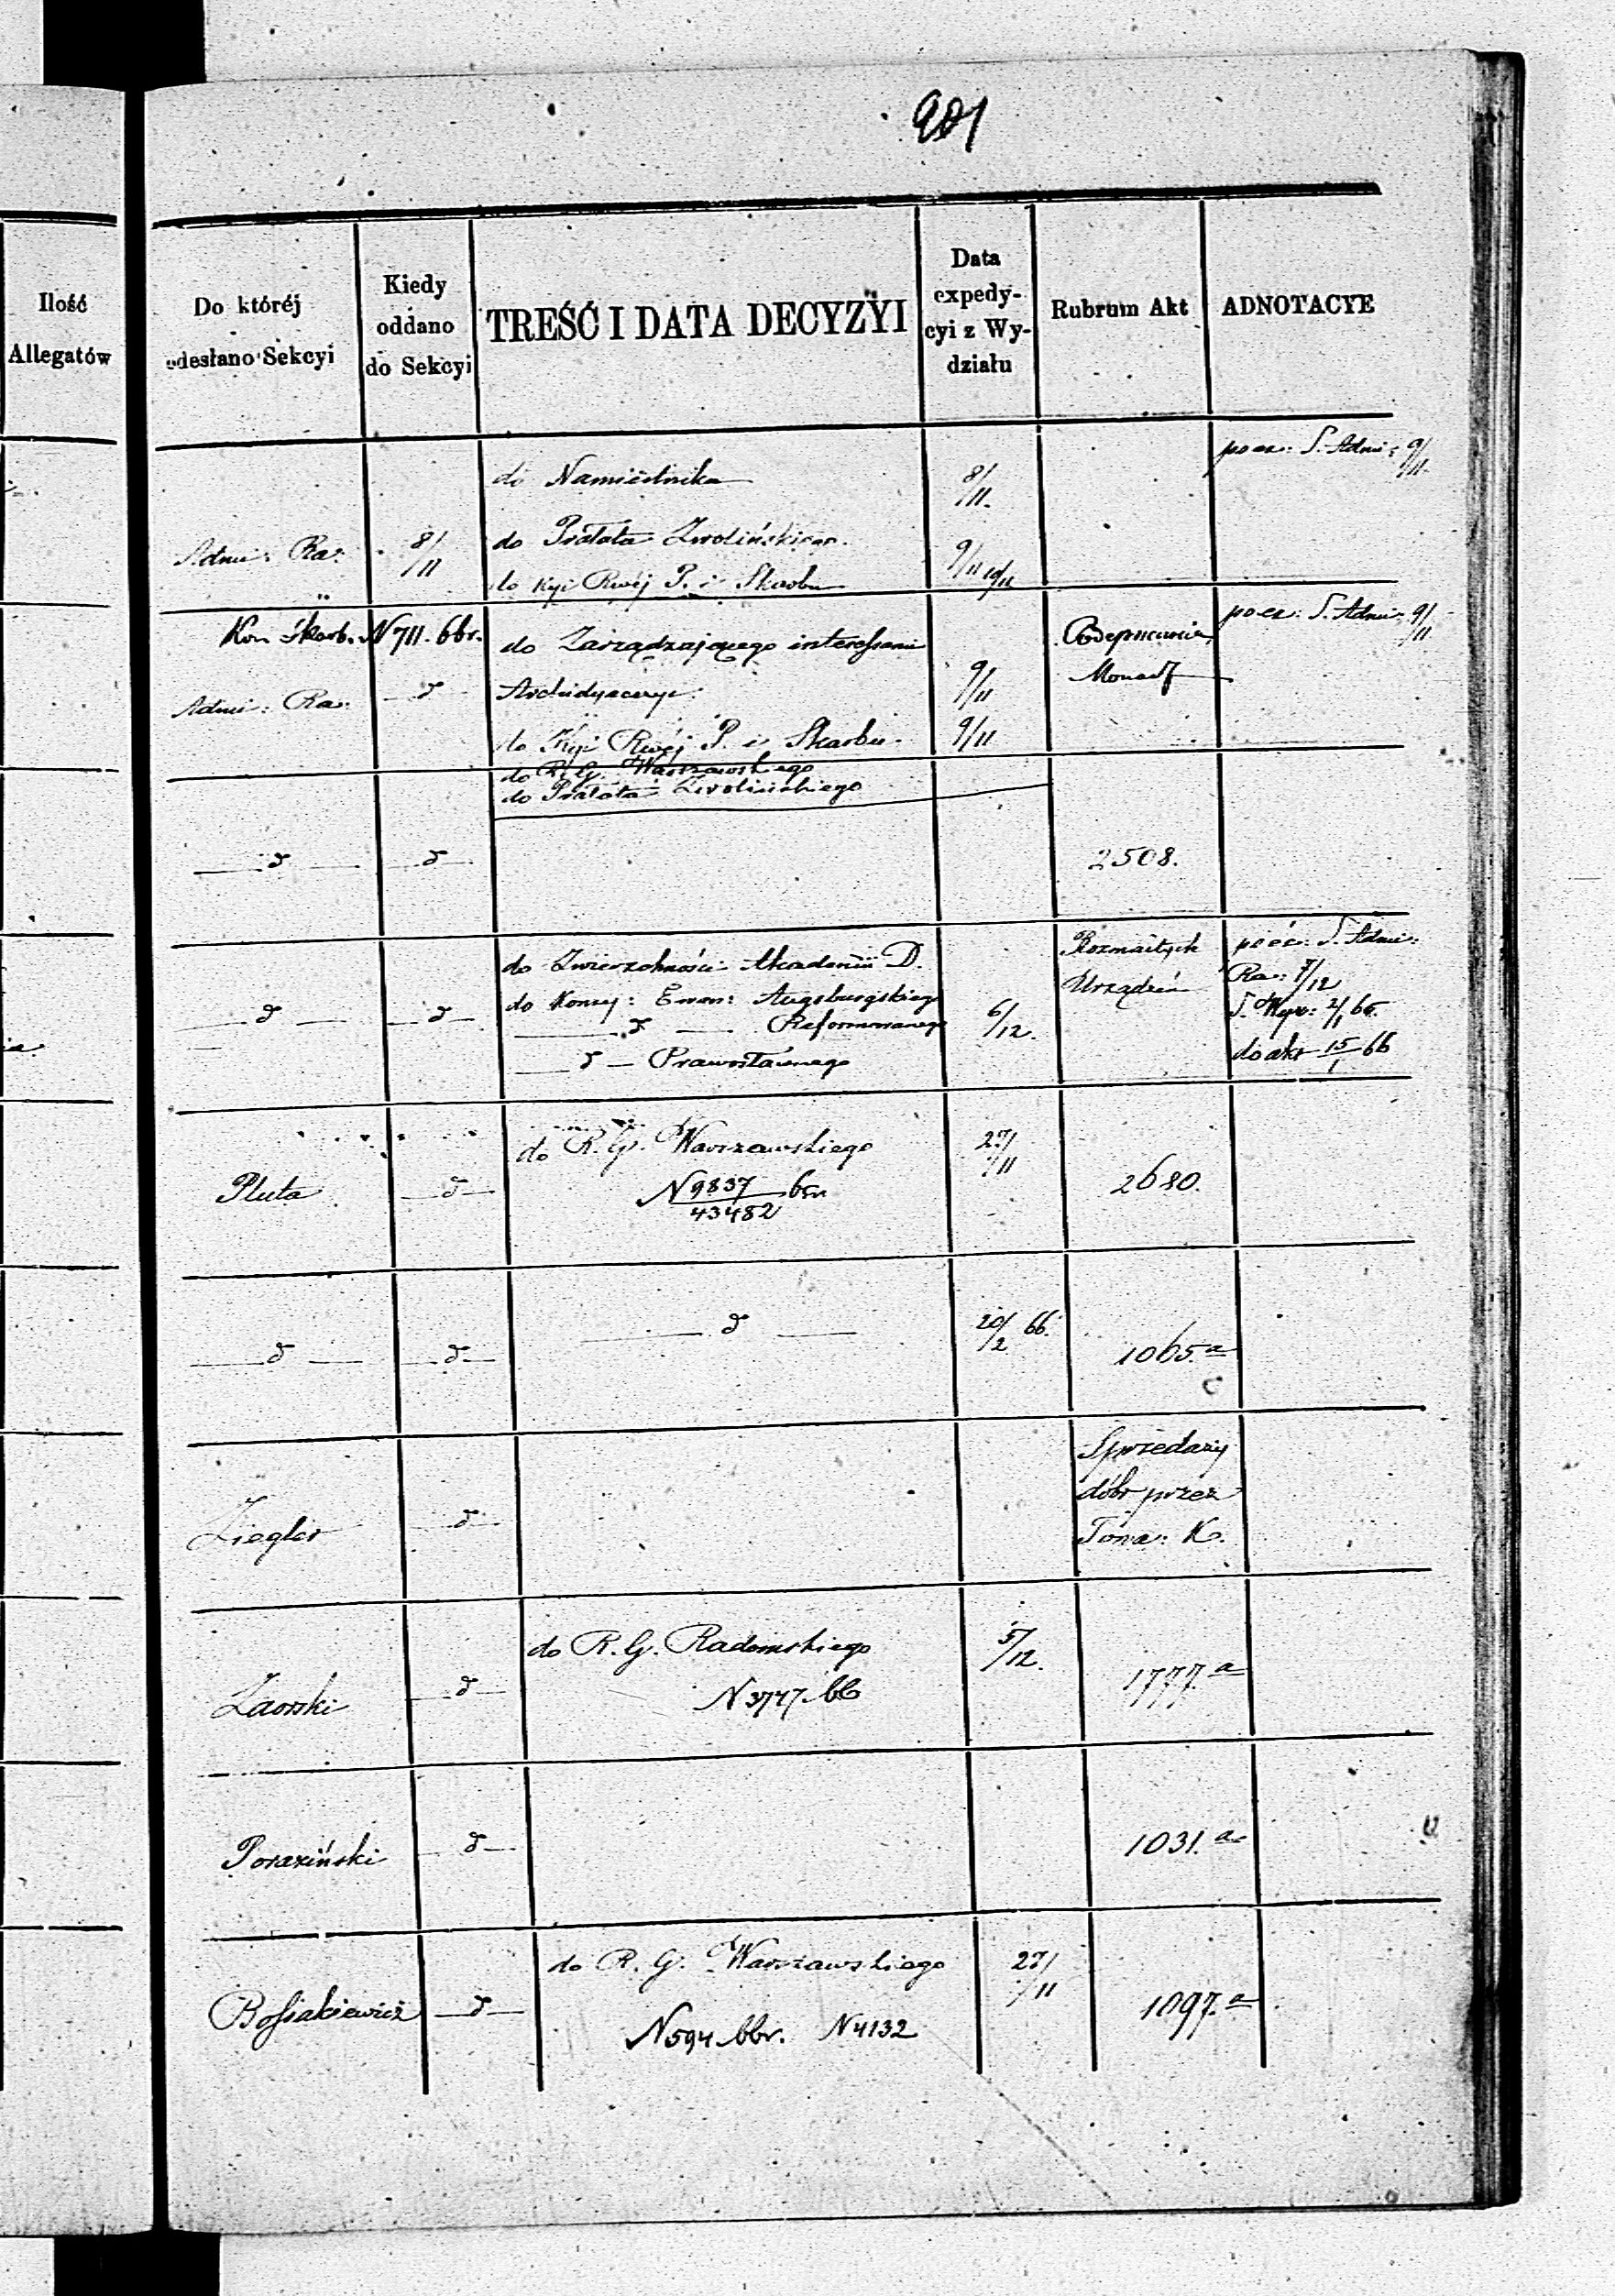 201
Ilość
Allegatów
Do któréj
odesłano Sekcyi
Kiedy
oddano
do Sekcyi
TREŚĆ I DATA DECYZYI
Data
expedy-
cyi z Wy-
działu
Rubrum Akt
ADNOTACYE
do Namiestnika
8/11.
pocz: S. Admi: 9/11.
Admi: Ra:
8/11
do Prałata Zwolińskiego.
9/11 10/11
do Kyi Rwéj P. i Skarbu
Kom Skarb. N 711. 66r.
do Zarządzającego interessami
pocz: S. Admi: 9/11
Admi: Ra:
d
Archidyecezyi
9/11
do Kyi Rwéj P. i Skarbu
9/11
do R. G. Warszawskiego
do Prałata Zwolińskiego
d
d
2508.
do Zwierzchności Akademii D.
Rozmaitych
Urządzeń
pocz: S. Admi:
Ra: 7/12
d
d
do Konsy: Ewan: Augsburgskiego
d Reformowanego
6/12.
do akt 15/1 66
d Prawosławnego
Pluta
d
do R. G. Warszawskiego
27/11
N 9837/43482 65r.
2680.
d
d
d
20/2 66.
1065.a
Ziegler
d
Sprzedaży
dóbr przez
Towa: K.
Zaorski
d
do R. G. Radomskiego
5/12.
N 3747. 66
1777.a
Poraziński
d
1031.a
Bossakiewicz
d
do R. G. Warszawskiego
27/11
N 594 66r. N 4132
1097.a